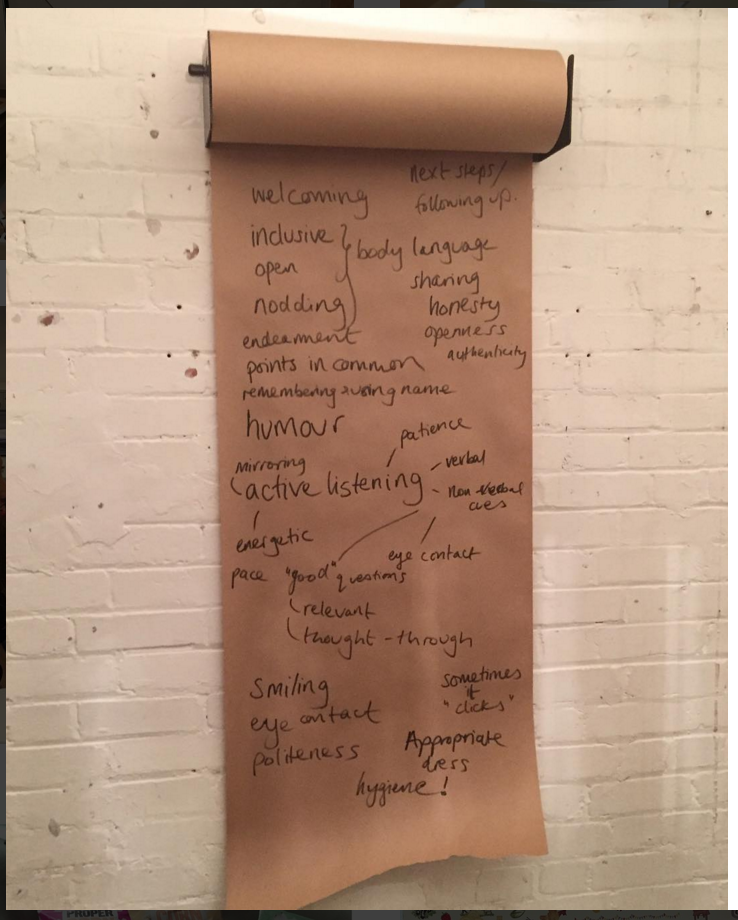 next steps/
following up.
welcoming
inclusive
open
nodding
body language
sharing
honesty
openness
authenticity
endearment
points in common
remembering + using name
humour
patience
mirroring
active listening
verbal
non-verbal
cues
energetic
eye contact
pace
"good" questions
relevant
thought-through
smiling
eye contact
politeness
sometimes
it
"clicks"
Appropriate
dress
hygiene!
PROPER